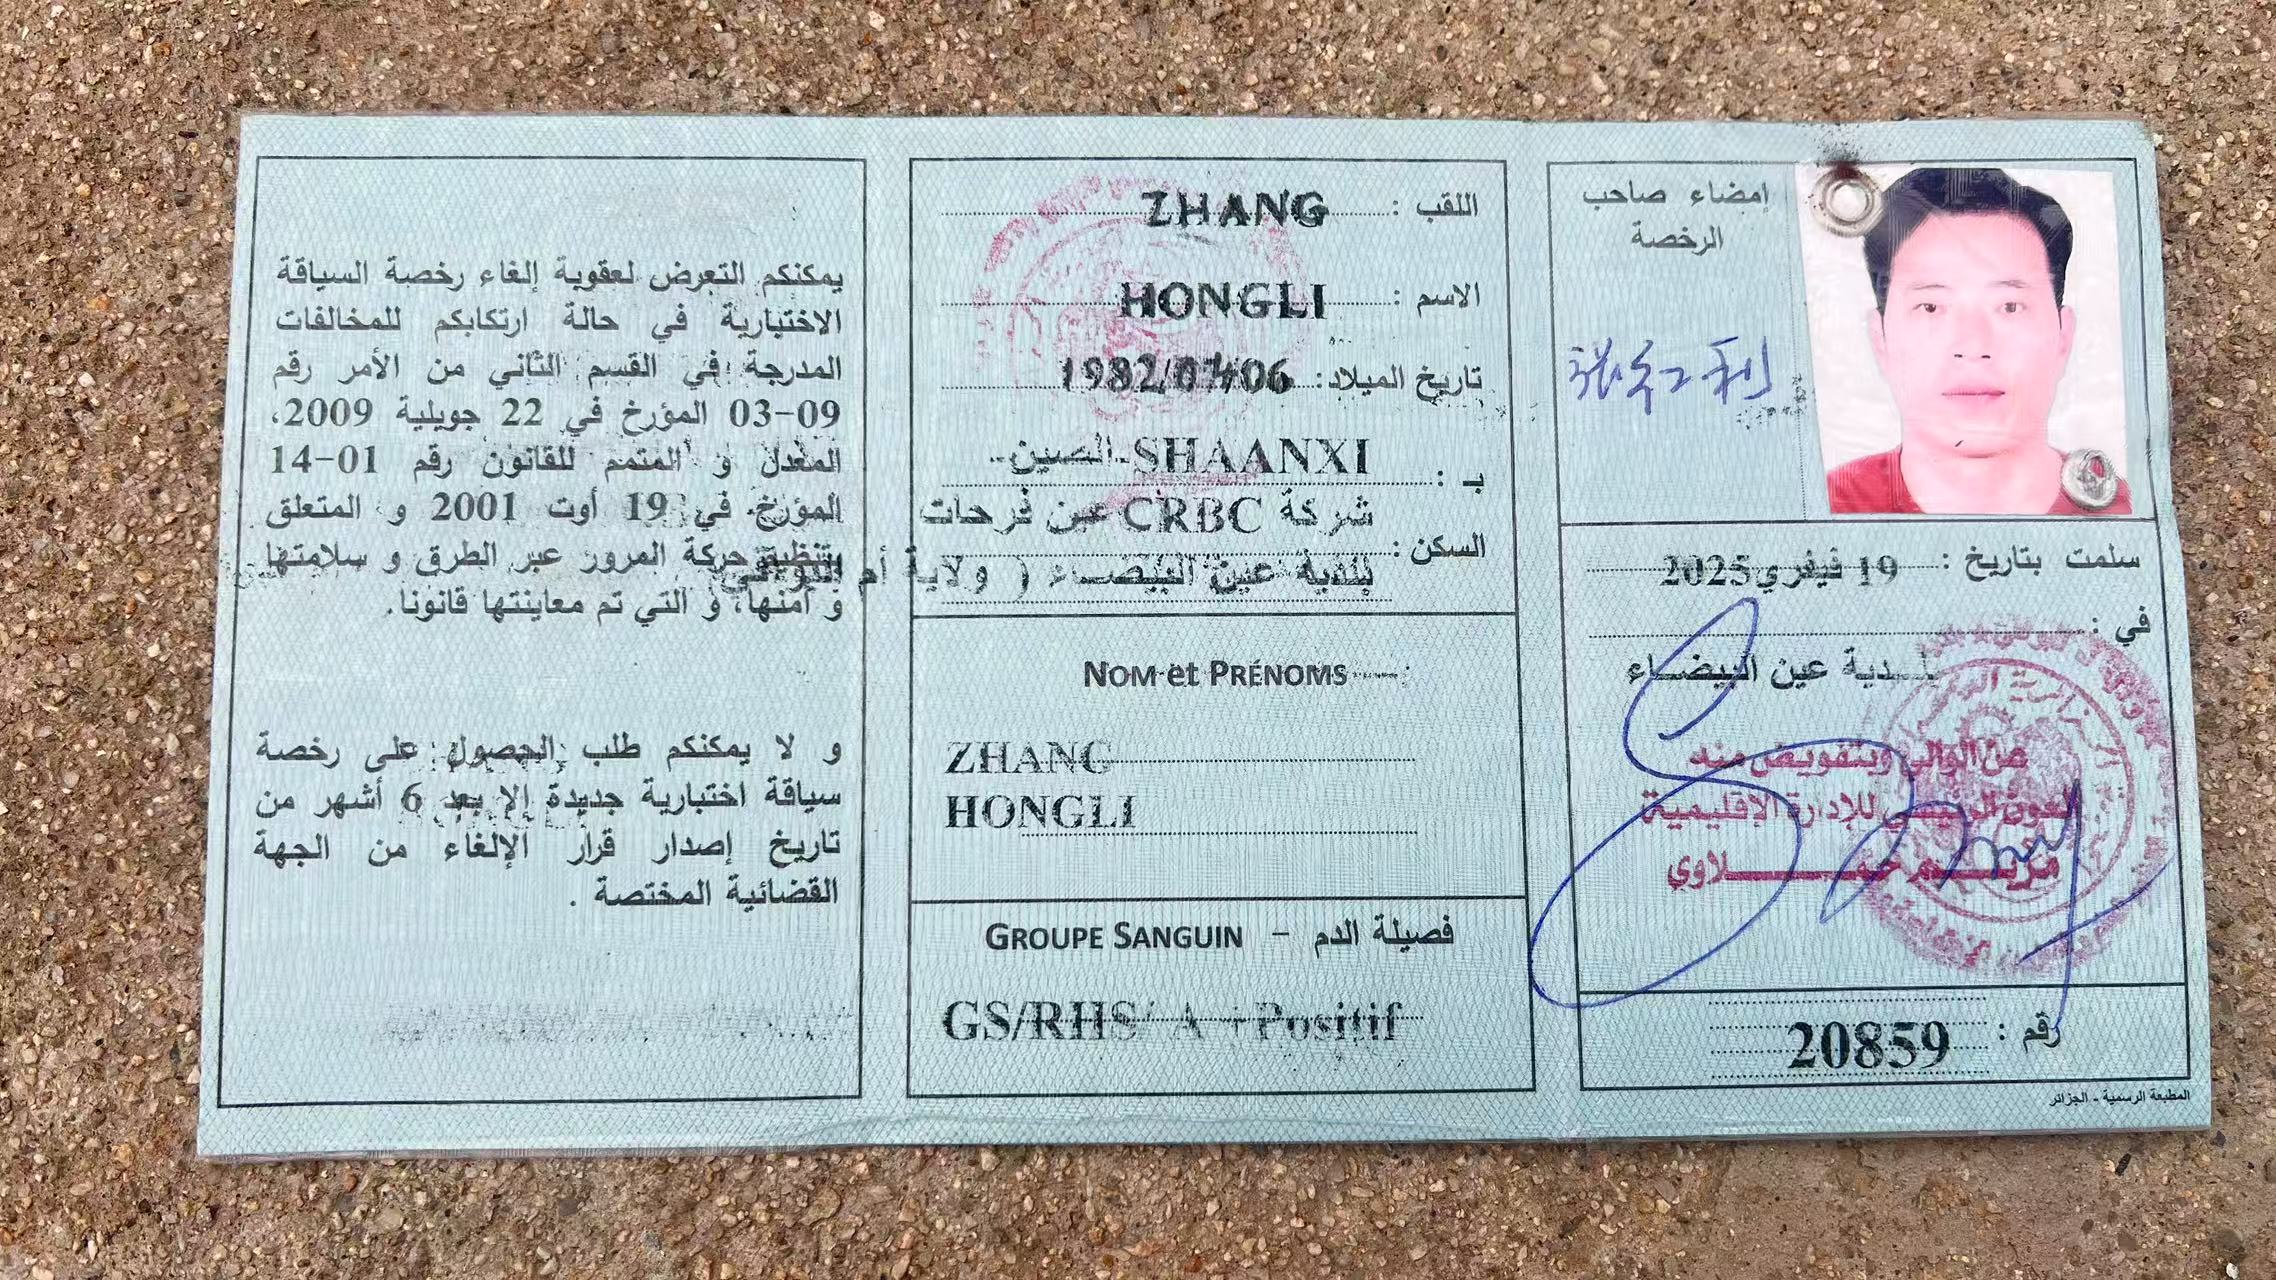 إمضاء صاحب
الرخصة
张红利
سلمت بتاريخ : 19 فيفري 2025
في :
بلدية عين البيضاء
عن الوالي وبتفويض منه
العون الرئيسي للإدارة الإقليمية
رقم : 20859
المطبعة الرسمية - الجزائر
اللقب : ZHANG
الاسم : HONGLI
تاريخ الميلاد: 1982/07/06
بـ : SHAANXI -الصين-
السكن : شركة CRBC عين فرحات
بلدية عين البيضاء ( ولاية أم البواقي
NOM et PRÉNOMS :
ZHANG
HONGLI
GROUPE SANGUIN - فصيلة الدم
GS/RHS/ A + Positif
يمكنكم التعرض لعقوبة إلغاء رخصة السياقة
الاختبارية في حالة ارتكابكم للمخالفات
المدرجة في القسم الثاني من الأمر رقم
09-03 المؤرخ في 22 جويلية 2009،
المعدل و المتمم للقانون رقم 01-14
المؤرخ في 19 أوت 2001 و المتعلق
بتنظيم حركة المرور عبر الطرق و سلامتها
و أمنها، و التي تم معاينتها قانونا.
و لا يمكنكم طلب الحصول على رخصة
سياقة اختبارية جديدة إلا بعد 6 أشهر من
تاريخ إصدار قرار الإلغاء من الجهة
القضائية المختصة .